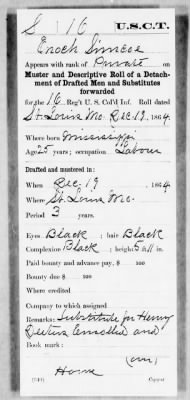 S 16 U.S.C.T.
Enoch
Appears with rank of Private on
Muster and Descriptive Roll of a Detach-
ment of Drafted Men and Substitutes
forwarded
for the 16 Reg't U. S. Col'd Inf. Roll dated
St. Louis Mo. Dec. 19, 1864.
Where born Mississippi
Age 25 years; occupation Labour
Drafted and mustered in:
When Dec. 19, 1864.
Where St. Louis Mo.
Period 3 years.
Eyes Black; hair Black
Complexion Black; height 5 ft. 11 in.
Paid bounty and advance pay, $ 100
Bounty due $ 100
Where credited
Company to which assigned
Remarks: Substitute for Henry
enrolled and
Book mark:
Horne
Copyist